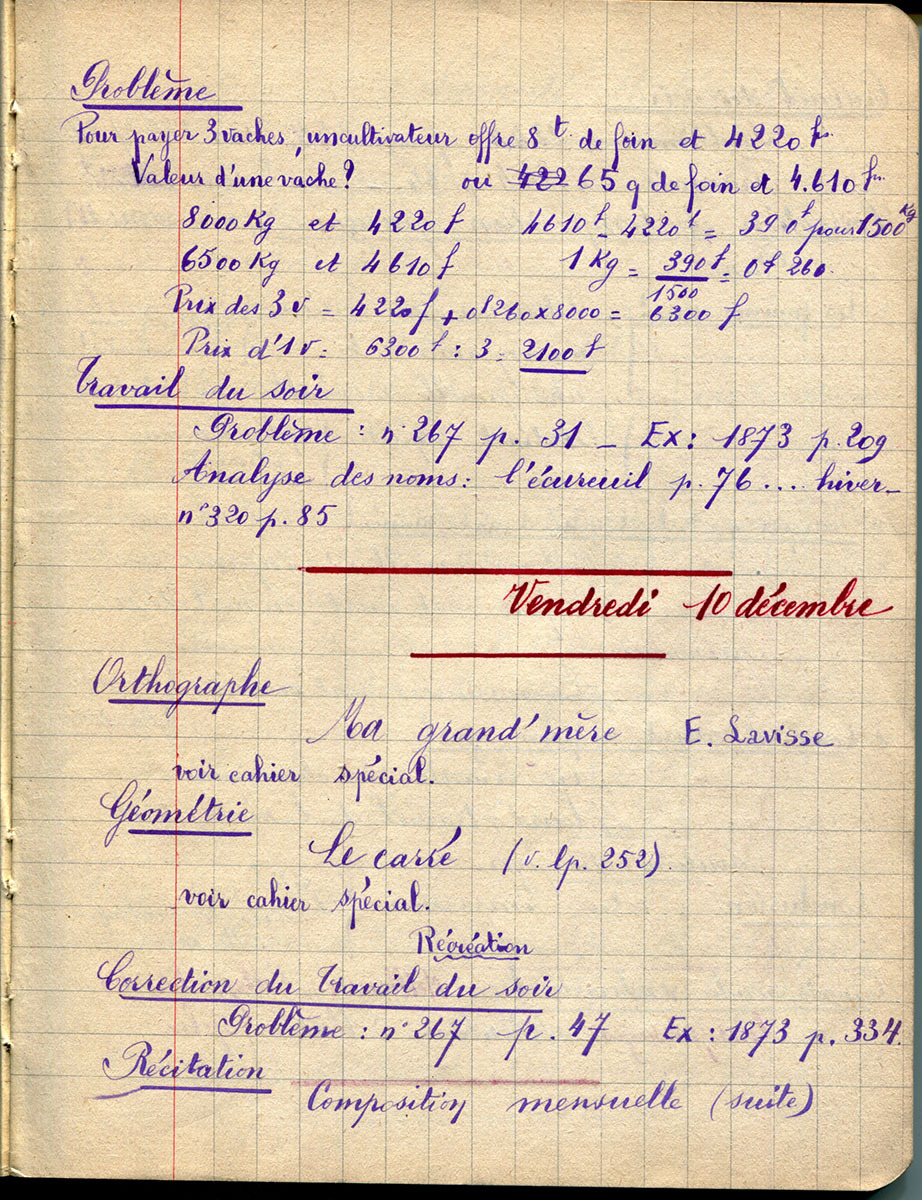 Problème
Pour payer 3 vaches, un cultivateur offre 8t de foin et 4220f
Valeur d'une vache ? ou 422 65 q de foin et 4.610f
8000 Kg et 4220f 4610f - 4220f = 390f pour 1500Kg
6500 Kg et 4610f 1 Kg = 390f = 0f 260
1500
Prix des 3 v = 4220f + 0f260 x 8000 = 6300f
Prix d'1 v = 6300f : 3 = 2100f
Travail du soir
Problème : n° 267 p. 31 – Ex : 1873 p. 209
Analyse des noms : l'écureuil p. 76 .... hiver –
n° 320 p. 85
Vendredi 10 décembre
Orthographe
Ma grand'mère E. Lavisse
voir cahier spécial.
Géométrie
Le carré (v. lp. 252)
voir cahier spécial.
Récréation
Correction du travail du soir
Problème : n° 267 p. 47 Ex : 1873 p. 334.
Récitation
Composition mensuelle (suite)